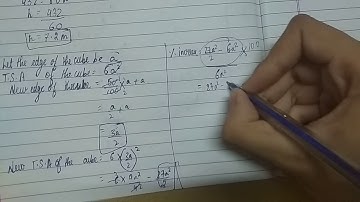 h = 432
60
h = 7.2 m
Let the edge of the cube be a
T.S.A of the cube = 6a²
New edge of the cube = 50/100 × a + a
= a/2 + a
= 3a/2
New T.S.A of the cube = 6 × (3a/2)²
= 6 × 9a²/4 = 27a²/2
% increase = (27a²/2 - 6a²) × 100
6a²
= 27a²